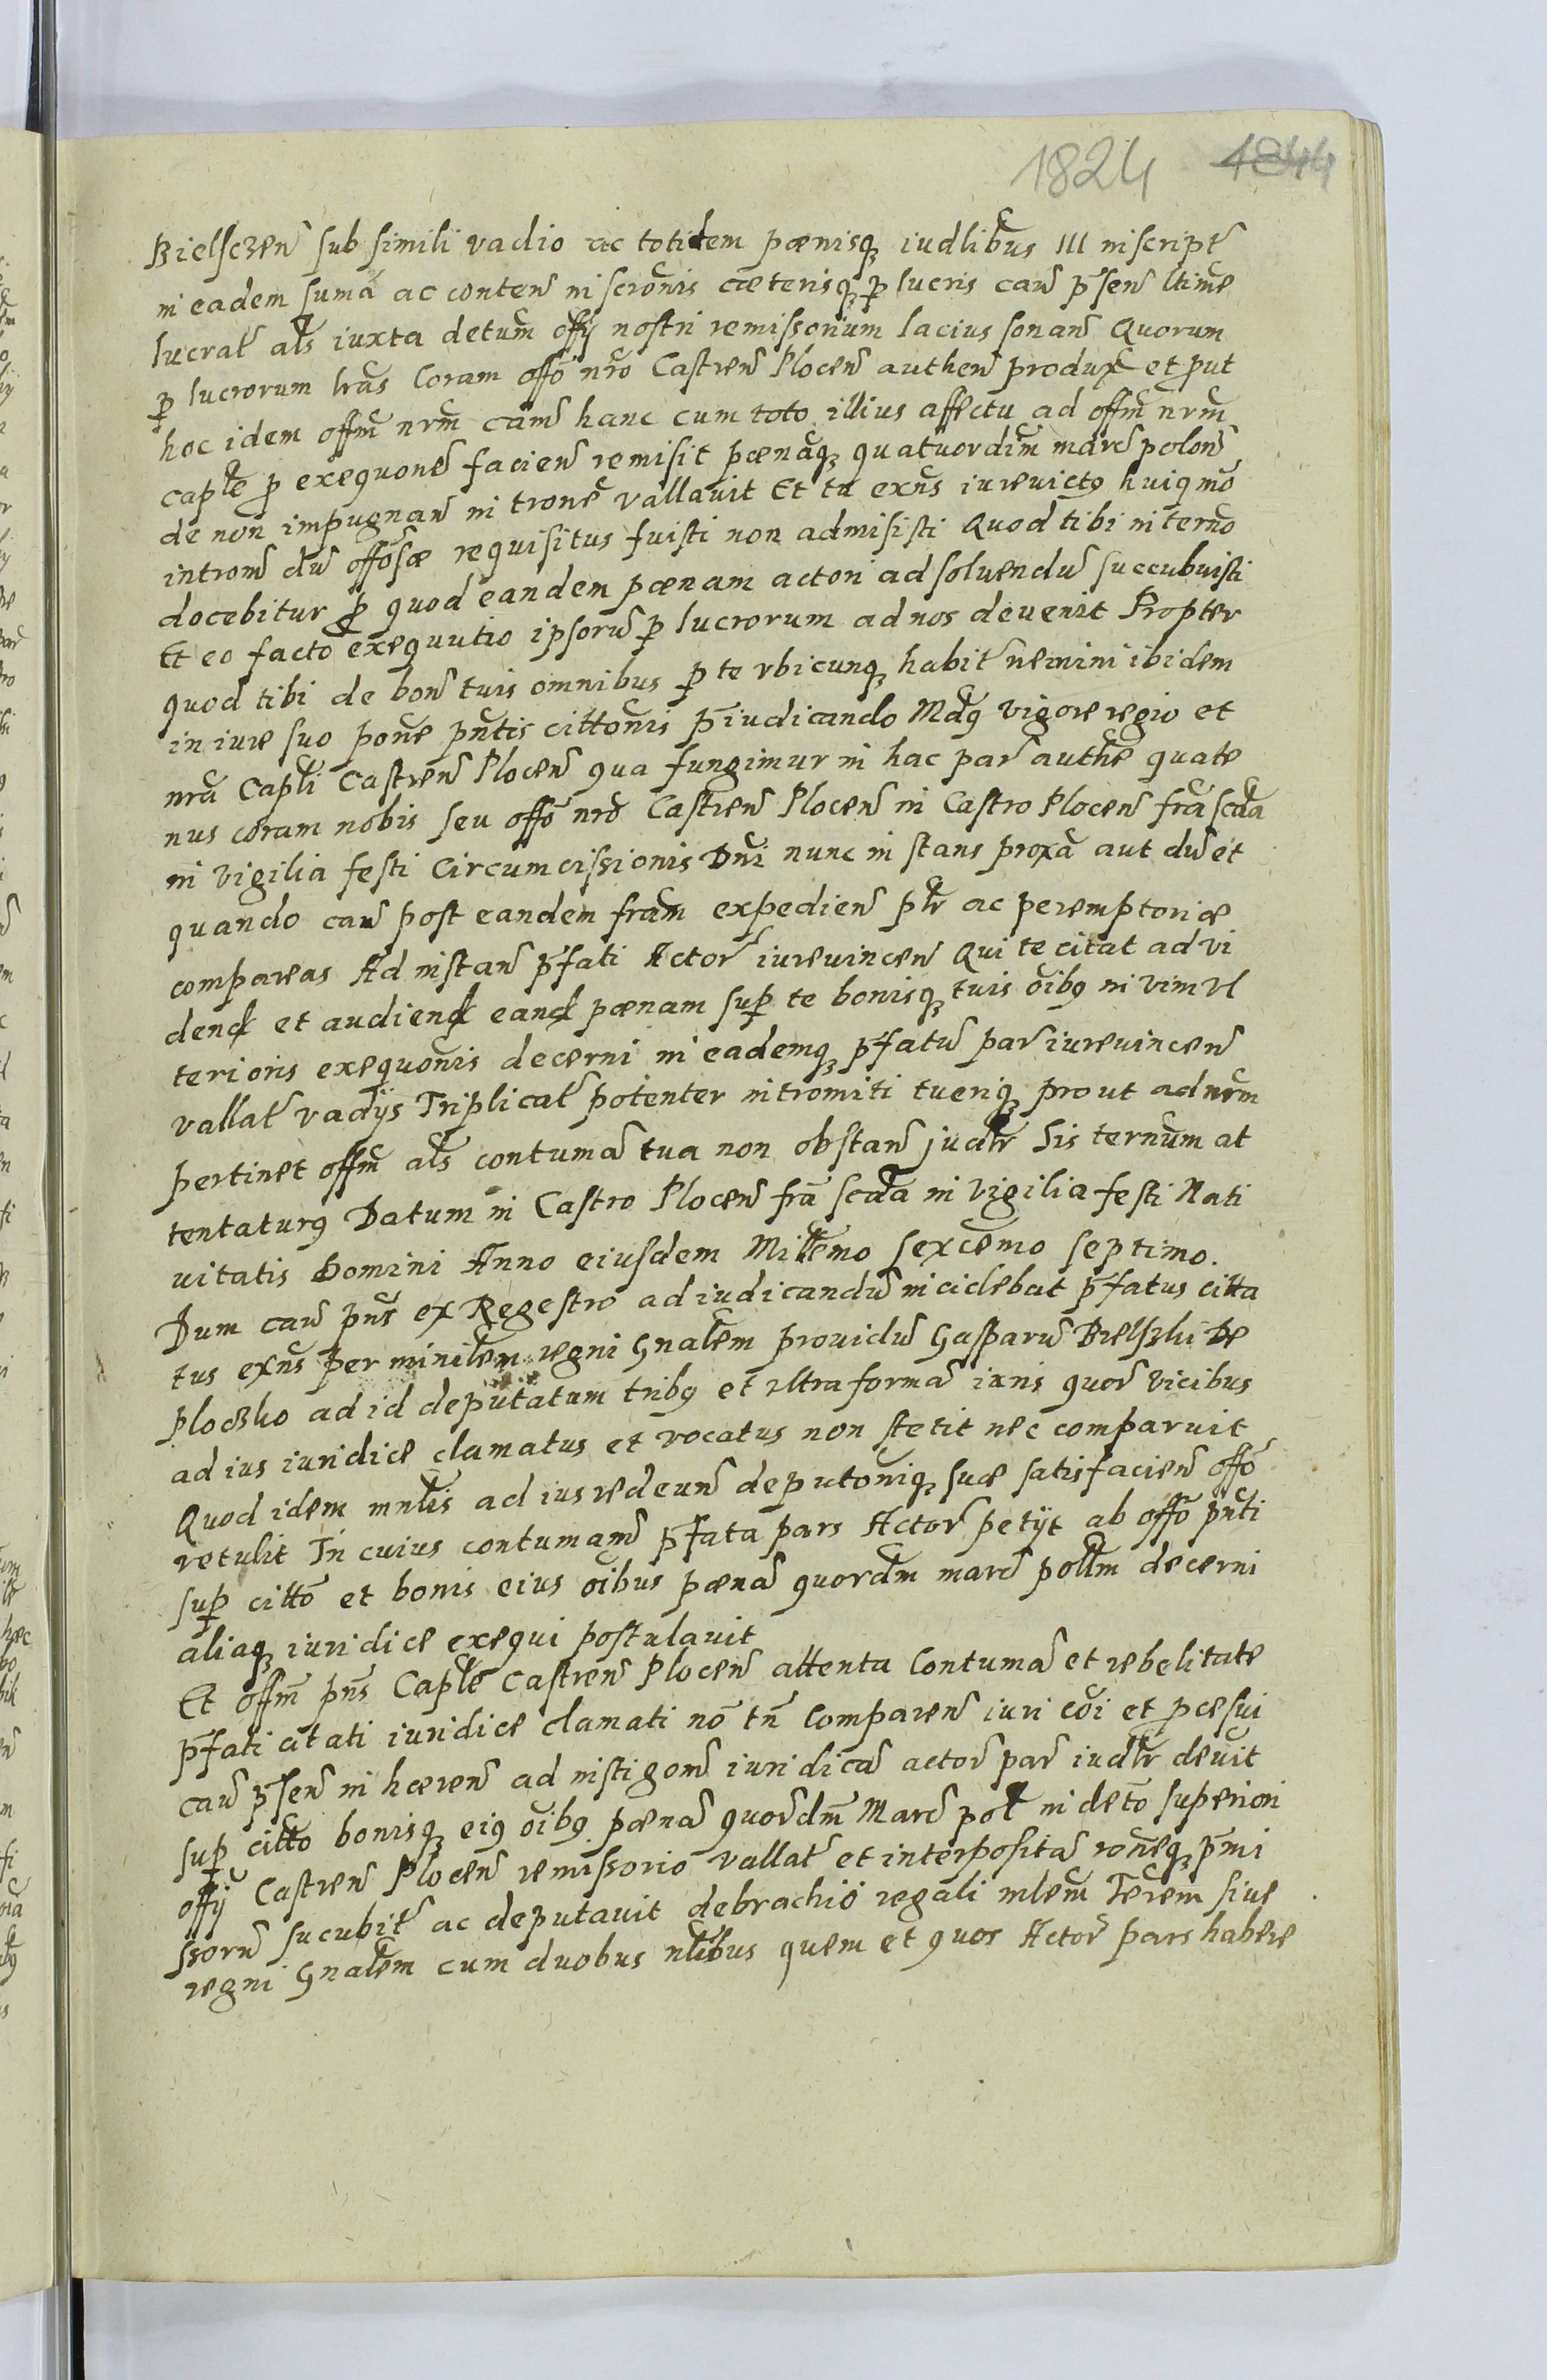 1824 1844
Bielsczen̄ sub simili vadio ac totidem pœnisq̨ iudlibus III inscript̄
in eadem sum̄a ac conten̄ inscronis cæterisq̨ ꝑ lucris cau̅ p̄sen̄ ltime
lucrat̄ als iuxta detum offij nostri remissorium lacius sonan̄ Quorum
ꝑ lucrorum lras Coram offo nro Castren̄ Plocen̄ authen̄ produx̄ et put
hoc idem offm nrm cam̄ hanc cum toto illius affectu ad offm nrm
caple ꝑ exequone facien̄ remisit pœnaq̨ quatuordim marc̄ polon̄
de non impugnan̄ introne vallauit Et tu exns iurevictꝰ huiꝰmo
introm̄ du̅ offose requisitus fuisti non admisisti Quod tibi in terno
docebitur ꝑ quod eandem pœnam actori ad soluendu̅ succubuisti
Et eo facto exequutio ipsoru̅ ꝑ lucrorum ad nos devenit Propter
quod tibi de bon̄ tuis omnibus ꝑ te vbicunq̨ habit̄ nemini ibidem
in iure suo pone pn̄tis cittonis p̄iudicando Mdꝰ vigore regio et
nra Capli Castren̄ Plocen̄ qua fungimur in hac par̄ authe quate
nus coram nobis seu offo nro Castren̄ Plocen̄ in Castro Plocen̄ fra scda
in vigilia festi Circumcissionis Dni nunc instans proxa aut du̅ et
quando cau̅ post eandem fram expedien̄ ptr ac peremptorie
compareas Ad instan̄ p̄fati Actor̄ iurevincen̄ Qui te citat ad vi
dend et audiend eand pœnam suꝑ te bonisq̨ tuis oibꝰ in vim vl
terioris exequonis decerni in eademq̨ p̄fatu̅ par̄ iurevincen̄
vallat̄ vadijs Triplicat̄ potenter intromiti tueriq̨ prout ad nrm
pertinet offm als contuma̅ tua non obstan̄ judlr Sis ternum at
tentaturꝰ Datum in Castro Plocen̄ fra scda in Vigilia festi Nati
vitatis Domini Anno eiusdem Millemo sexcemo septimo.
Dum cau̅ pn̄s ex Regestro adiudicandu̅ incidebat p̄fatus citta
tus exns per ministem regni Gnalem prouidu̅ Gasparu̅ Bielszki De
Ploczko ad id deputatum tribꝰ et vltra forma̅ iuris quor̄ vicibus
ad ius iuridice clamatus et vocatus non stetit nec comparuit
Quod idem mnlis ad ius redeun̄ deputoniq̨ suæ satisfacien̄ offo
retulit In cuius contumam̄ p̄fata pars Actor̄ petijt ab offo pn̄ti
suꝑ citto et bonis eius oibus pœna̅ quordm marc̄ pollm decerni
aliaq̨ iuridice exequi postulauit
Et offm pn̄s Caple Castren̄ Plocen̄ attenta Contuma̅ et rebelitate
p̄fati citati iuridice clamati no̅ tn̄ Comparen̄ iuri coi et pcesui
cau̅ p̄sen̄ inhæren̄ ad instigom̄ iuridica̅ actor̄ par̄ iudlr devit
suꝑ citto bonisq̨ eiꝰ oibꝰ pœna̅ quordm Marc̄ pol in deto superiori
offij Castren̄ Plocen̄ remissorio vallat̄ et interposita̅ roneq̨ p̄mi
ssoru̅ sucubit̄ ac deputauit de brachio regali mlem Terem siue
regni Gnalem cum duobus nlibus quem et quos Actor̄ pars habere